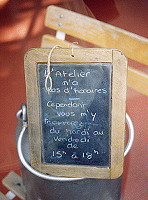 L'Atelier
n'a
pas d'horaires
Cependant
vous m'y
trouverez
du Mardi au
Vendredi
de
15h à 18h